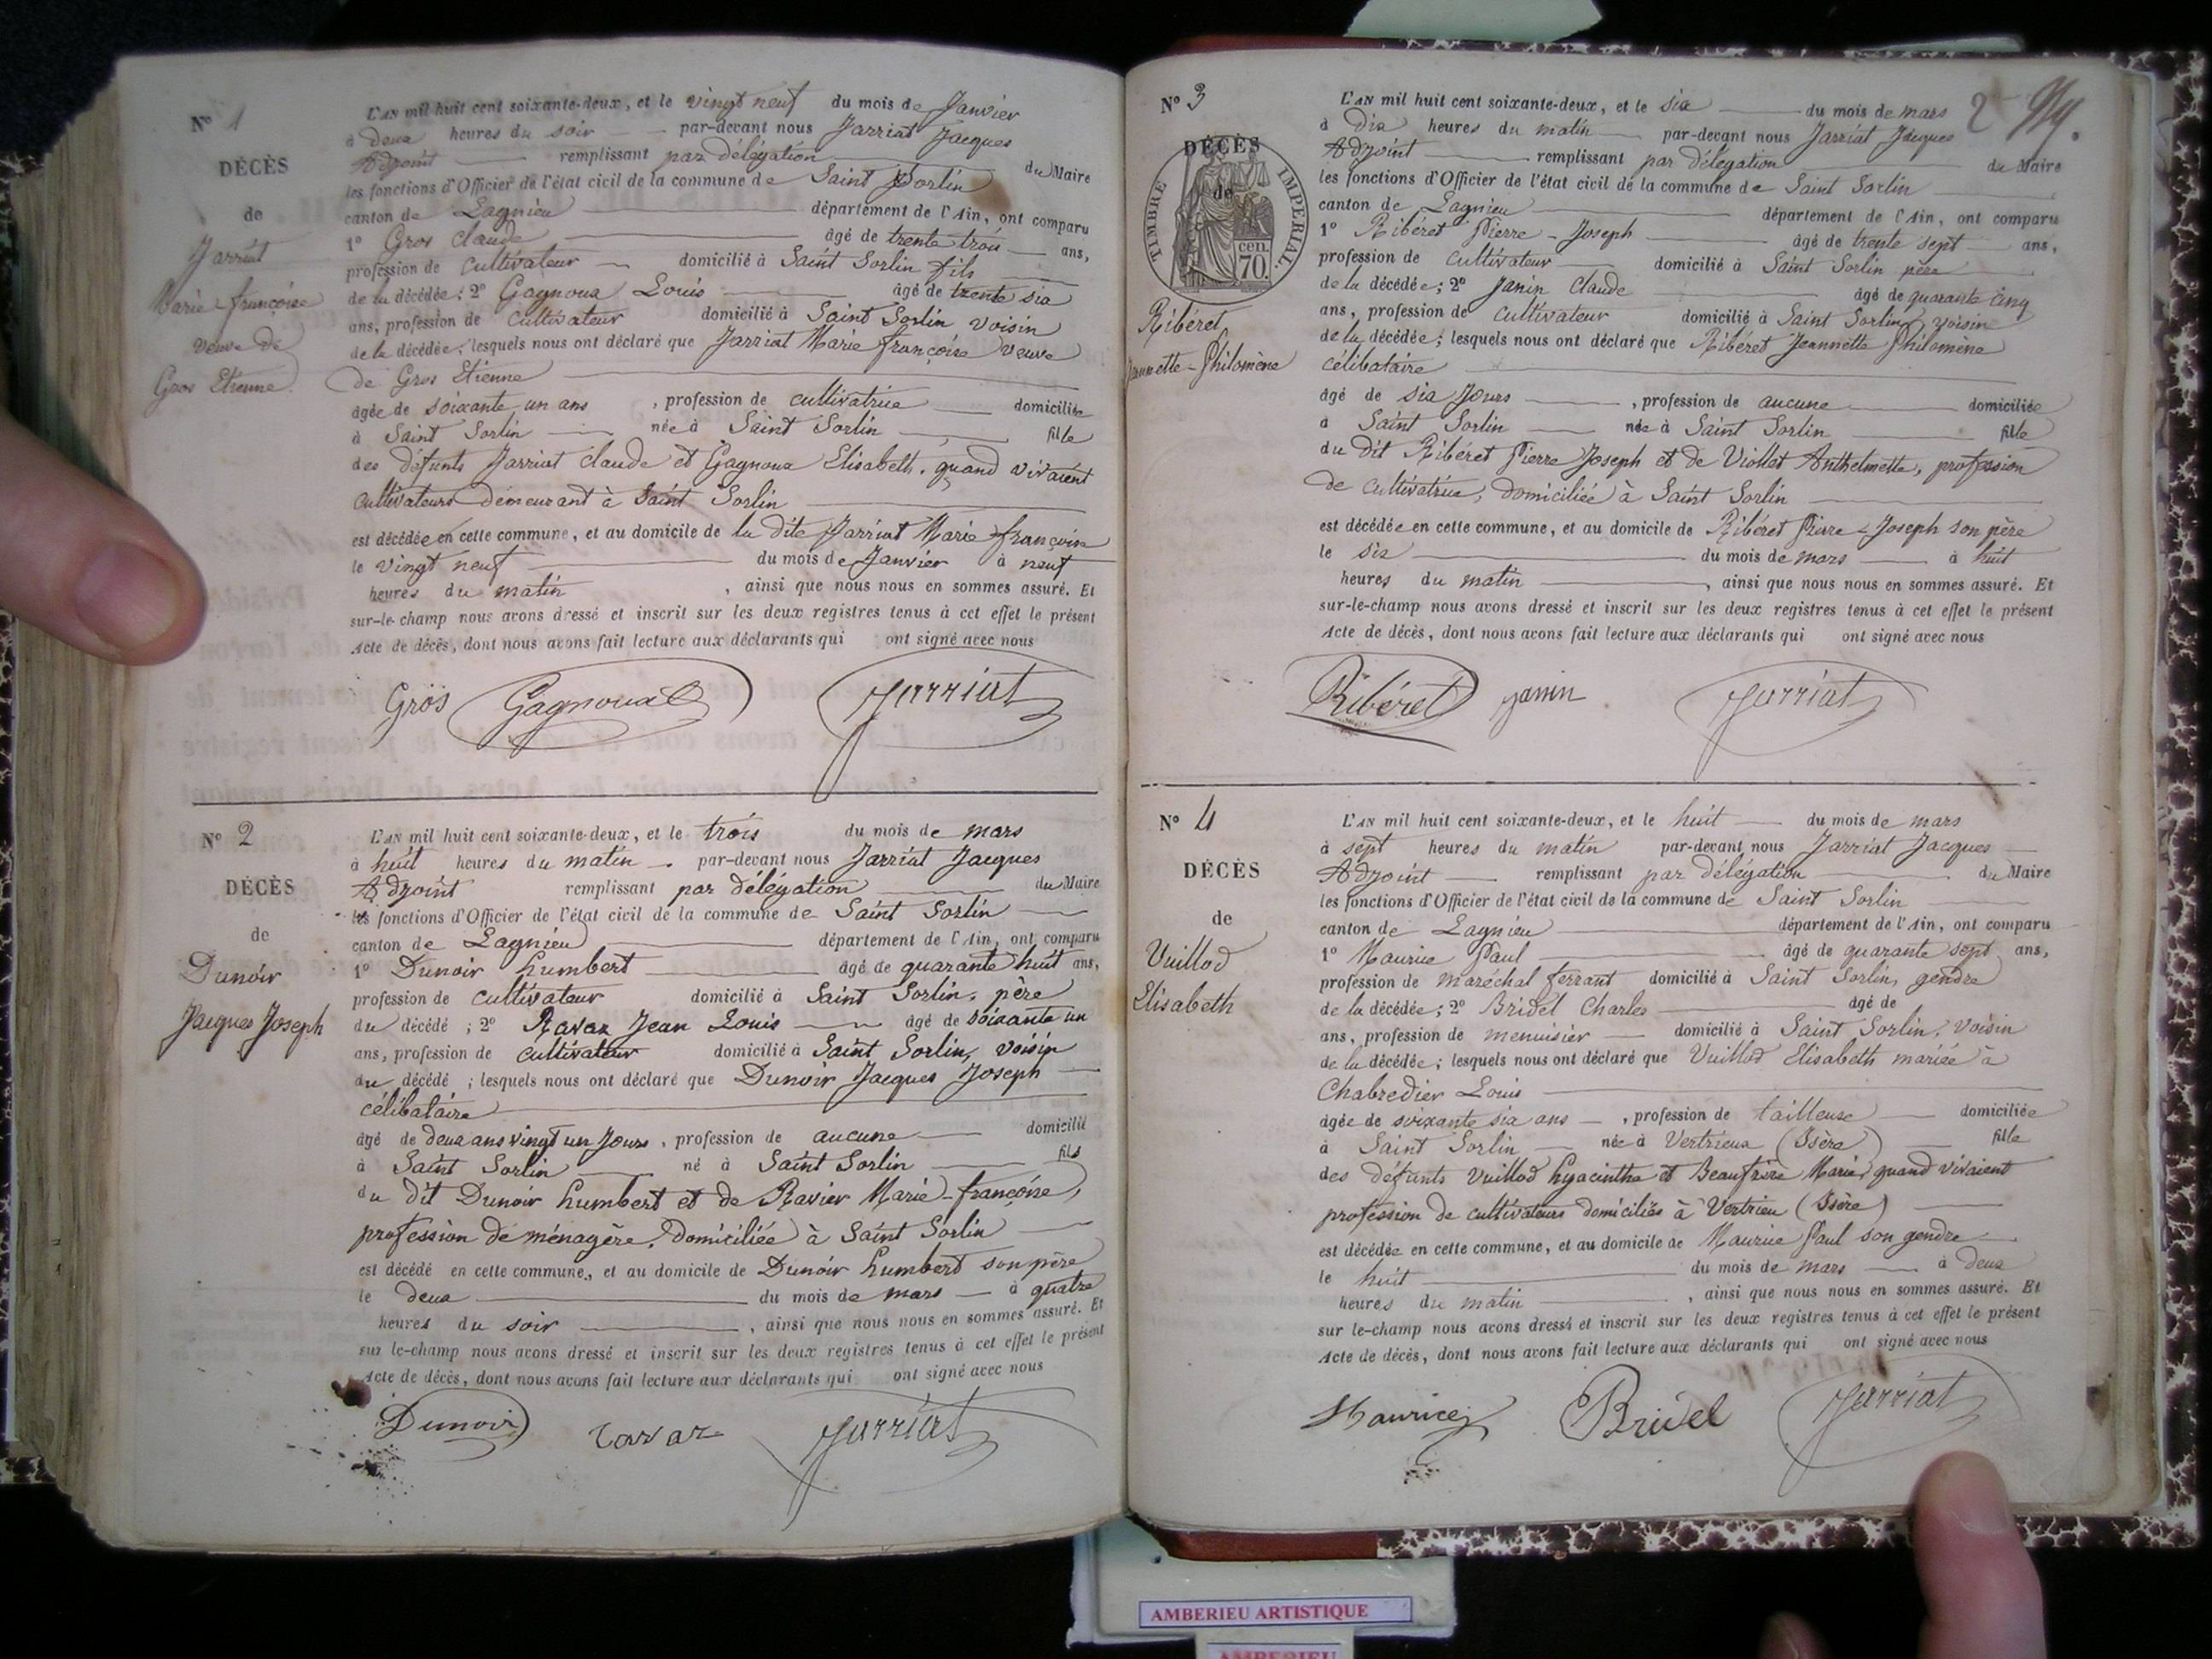 N° 1
DÉCÈS
de
Jarriat
Marie françoise
veuve de
Gros Etienne
L'AN mil huit cent soixante-deux, et le vingt neuf du mois de Janvier
à deux heures du soir par-devant nous Jarriat Jacques
Adjoint remplissant par délégation du Maire
les fonctions d'Officier de l'état civil de la commune de Saint Sorlin
canton de Lagnieu département de l'Ain, ont comparu
1° Gros Claude âgé de trente trois ans,
profession de cultivateur domicilié à Saint Sorlin fils
de la décédée; 2° Gagnoux Louis âgé de trente six
ans, profession de cultivateur domicilié à Saint Sorlin voisin
de la décédée; lesquels nous ont déclaré que Jarriat Marie françoise veuve
de Gros Etienne
âgée de soixante un ans, profession de cultivatrice domiciliée
à Saint Sorlin née à Saint Sorlin fille
des défunts Jarriat Claude et Gagnoux Elisabeth, quand vivaient
cultivateurs demeurant à Saint Sorlin
est décédée en cette commune, et au domicile de la dite Jarriat Marie françoise
le vingt neuf du mois de Janvier à neuf
heures du matin, ainsi que nous nous en sommes assuré. Et
sur-le-champ nous avons dressé et inscrit sur les deux registres tenus à cet effet le présent
Acte de décès, dont nous avons fait lecture aux déclarants qui ont signé avec nous
Gros Gagnoux Jarriat
N° 2
DÉCÈS
de
Dunoir
Jacques Joseph
L'AN mil huit cent soixante-deux, et le trois du mois de mars
à huit heures du matin par-devant nous Jarriat Jacques
Adjoint remplissant par délégation du Maire
les fonctions d'Officier de l'état civil de la commune de Saint Sorlin
canton de Lagnieu département de l'Ain, ont comparu
1° Dunoir humbert âgé de quarante huit ans,
profession de cultivateur domicilié à Saint Sorlin, père
du décédé; 2° Ravaz Jean Louis âgé de soixante un
ans, profession de cultivateur domicilié à Saint Sorlin, voisin
du décédé; lesquels nous ont déclaré que Dunoir Jacques Joseph
célibataire
âgé de deux ans vingt un Jours, profession de aucune domicilié
à Saint Sorlin né à Saint Sorlin fils
du dit Dunoir humbert et de Ravier Marie-françoise,
profession de ménagère, domiciliée à Saint Sorlin
est décédé en cette commune, et au domicile de Dunoir humbert son père
le deux du mois de mars à quatre
heures du soir, ainsi que nous nous en sommes assuré. Et
sur le-champ nous avons dressé et inscrit sur les deux registres tenus à cet effet le présent
Acte de décès, dont nous avons fait lecture aux déclarants qui ont signé avec nous
Dunoir ravaz Jarriat
N° 3
DÉCÈS
de
TIMBRE IMPERIAL.
cen.
70.
Ribéret
Jeannette-Philomène
2
L'AN mil huit cent soixante-deux, et le six du mois de mars
à dix heures du matin par-devant nous Jarriat Jacques
Adjoint remplissant par délégation du Maire
les fonctions d'Officier de l'état civil de la commune de Saint Sorlin
canton de Lagnieu département de l'Ain, ont comparu
1° Ribéret Pierre-Joseph âgé de trente sept ans,
profession de cultivateur domicilié à Saint Sorlin père
de la décédée; 2° Janin Claude âgé de quarante cinq
ans, profession de cultivateur domicilié à Saint Sorlin voisin
de la décédée; lesquels nous ont déclaré que Ribéret Jeannette Philomène
célibataire
âgé de six Jours, profession de aucune domiciliée
à Saint Sorlin née à Saint Sorlin fille
du dit Ribéret Pierre Joseph et de Viollet Anthelmette, profession
de cultivatrice, domiciliée à Saint Sorlin
est décédée en cette commune, et au domicile de Ribéret Pierre-Joseph son père
le six du mois de mars à huit
heures du matin, ainsi que nous nous en sommes assuré. Et
sur-le-champ nous avons dressé et inscrit sur les deux registres tenus à cet effet le présent
Acte de décès, dont nous avons fait lecture aux déclarants qui ont signé avec nous
Ribéret janin Jarriat
N° 4
DÉCÈS
de
Vuillod
Elisabeth
L'AN mil huit cent soixante-deux, et le huit du mois de mars
à sept heures du matin par-devant nous Jarriat Jacques
Adjoint remplissant par délégation du Maire
les fonctions d'Officier de l'état civil de la commune de Saint Sorlin
canton de Lagnieu département de l'Ain, ont comparu
1° Maurice Paul âgé de quarante sept ans,
profession de maréchal ferrant domicilié à Saint Sorlin, gendre
de la décédée; 2° Bridel Charles âgé de
ans, profession de menuisier domicilié à Saint Sorlin, voisin
de la décédée; lesquels nous ont déclaré que Vuillod Elisabeth mariée à
Chabredier Louis
âgée de soixante six ans, profession de tailleuse domiciliée
à Saint Sorlin née à Vertrieux (Isère) fille
des défunts Vuillod hyacinthe et Beaufrère Marie, quand vivaient
profession de cultivateurs domiciliés à Vertrieu (Isère)
est décédée en cette commune, et au domicile de Maurice Paul son gendre
le huit du mois de mars à deux
heures du matin, ainsi que nous nous en sommes assuré. Et
sur le-champ nous avons dressé et inscrit sur les deux registres tenus à cet effet le présent
Acte de décès, dont nous avons fait lecture aux déclarants qui ont signé avec nous
Maurice Bridel Jarriat
AMBERIEU ARTISTIQUE
AMBERIEU